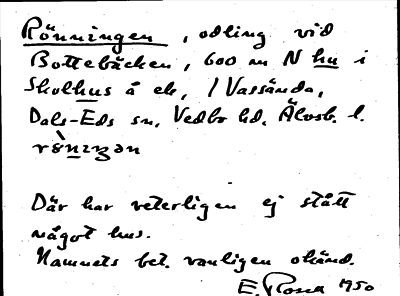 Rönningen, odling vid
Bottebäcken, 600 m N hu i
Skolhus å ek, 1 Vassända,
Dals-Eds sn, Vedbo hd, Älvsb. l.
Där har veterligen ej stått
något hus.
Namnets bet. vanligen okänd.
E. Rosen 1950